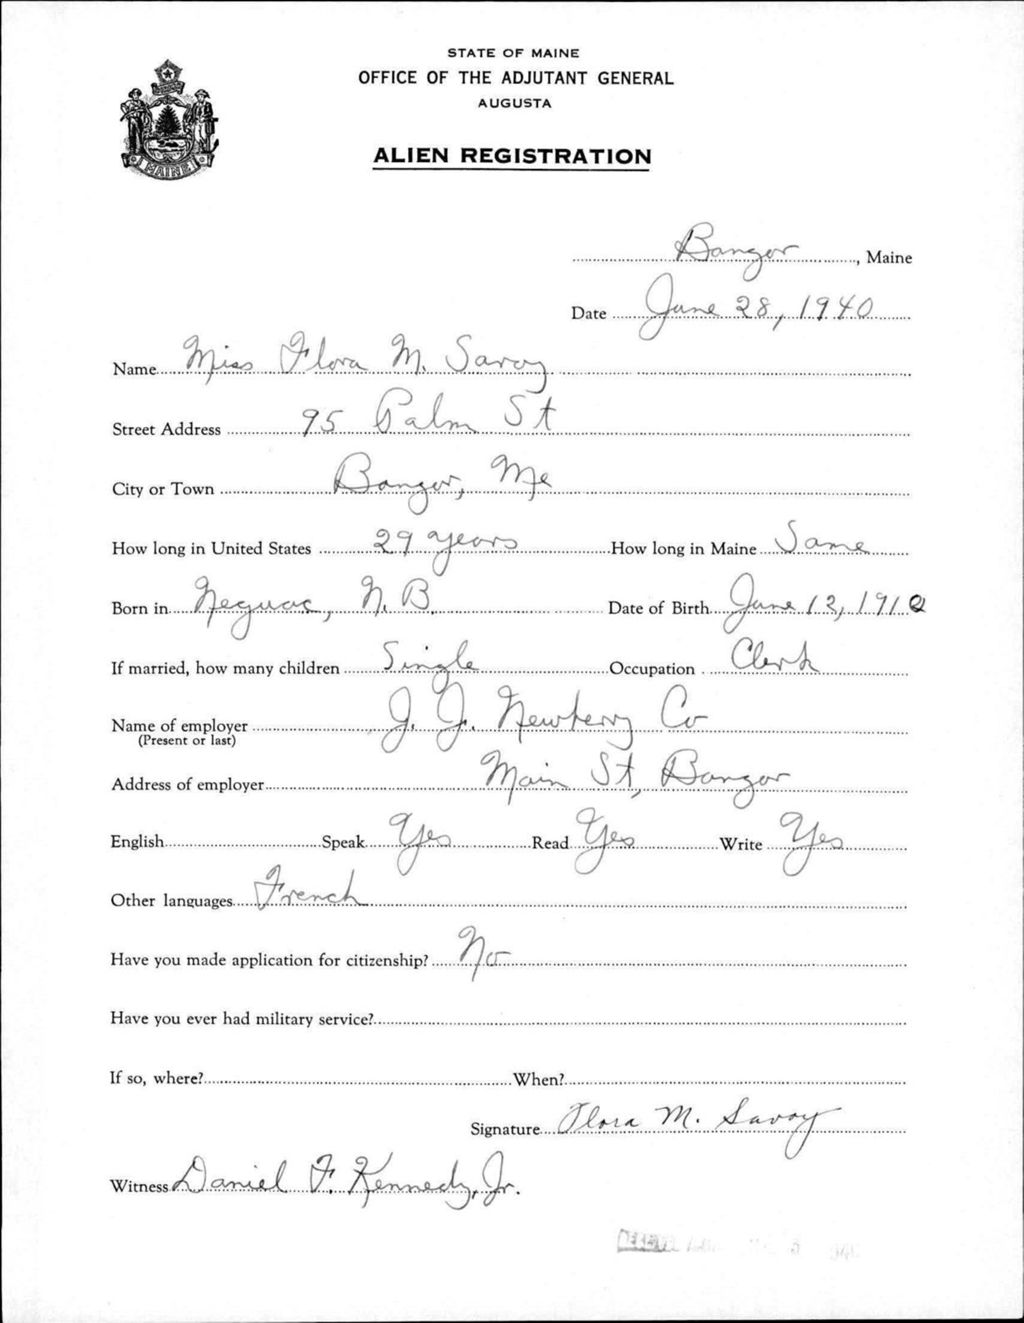 STATE OF MAINE
OFFICE OF THE ADJUTANT GENERAL
AUGUSTA
ALIEN REGISTRATION
MAINE
Bangor, Maine
Date June 28, 1940
Name Miss Flora M. Savoy
Street Address 95 Palm St
City or Town Bangor, Me
How long in United States 29 years How long in Maine Same
Born in Neguac, N. B. Date of Birth June 12, 1910
If married, how many children Single Occupation Clerk
Name of employer J. J. Newberry Co
(Present or last)
Address of employer Main St, Bangor
English Speak Yes Read Yes Write Yes
Other languages French
Have you made application for citizenship? No
Have you ever had military service?
If so, where? When?
Signature Flora M. Savoy
Witness Daniel F. Kennedy, Jr.